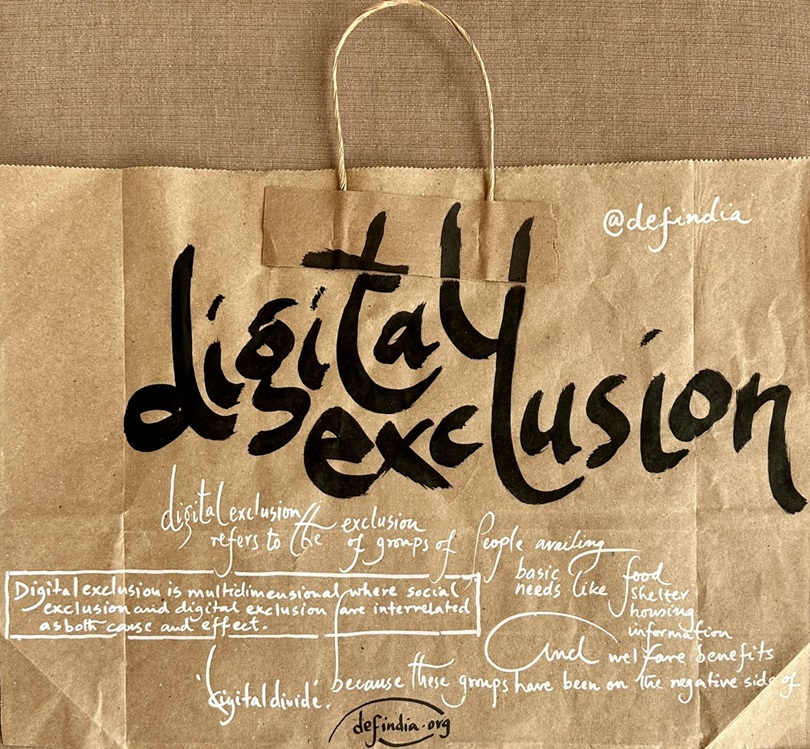 @defindia
digital
exclusion
digital exclusion
refers to the exclusion
of groups of People availing
basic
needs like food
shelter
housing
information
And welfare benefits
because these groups have been on the negative side of
'digital divide'.
Digital exclusion is multidimensional where social
exclusion and digital exclusion are interrelated
as both cause and effect.
defindia.org